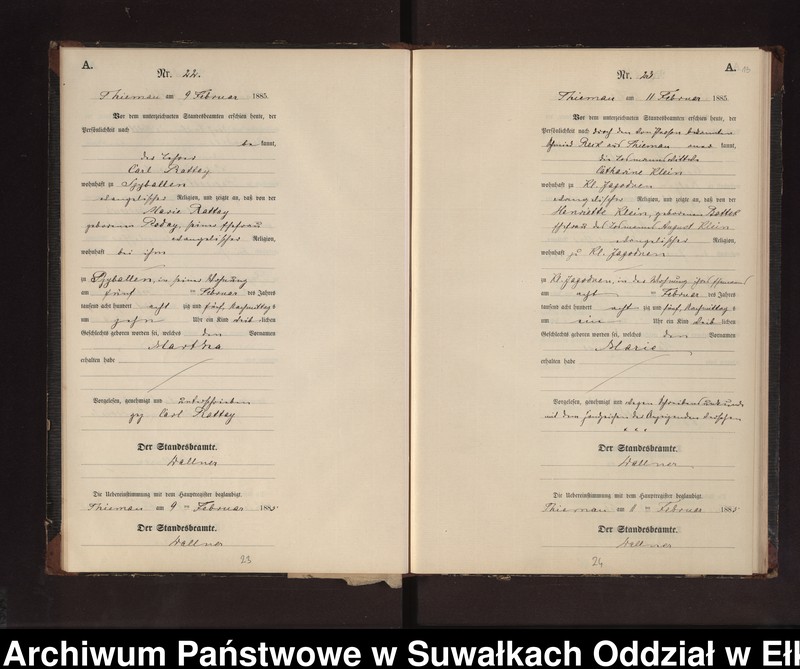 A.
Nr. 22.
Thiemau am 9 Februar 1885.
Vor dem unterzeichneten Standesbeamten erschien heute, der
Persönlichkeit nach
be kannt,
Carl Rattay
wohnhaft zu Gyballen
evangelischer Religion, und zeigte an, daß von der
Marie Rattay
geborenen seiner Ehefrau
evangelischer Religion,
wohnhaft bei ihm
zu in seiner Wohnung
am fünf ten Februar des Jahres
tausend acht hundert acht zig und fünf, Nachmittags
um zehn Uhr ein Kind weib lichen
Geschlechts geboren worden sei, welches den Vornamen
Martha
erhalten habe
Vorgelesen, genehmigt und unterschrieben
gez Carl Rattay
Der Standesbeamte.
Wallner
Die Uebereinstimmung mit dem Hauptregister beglaubigt.
Thiemau am 9 ten Februar 1885
Der Standesbeamte.
Wallner
23
A.
Nr. 23.
Thiemau am 11 Februar 1885.
Vor dem unterzeichneten Standesbeamten erschien heute, der
Persönlichkeit nach durch den von Person bekannten
Schmied aus Thiemau aner kannt,
die Losmannswittwe
Catharine Klein
wohnhaft zu Kl. Jagodnen
evangelischer Religion, und zeigte an, daß von der
Henriette Klein, geborenen
Ehefrau des Losmanns August Klein
evangelischer Religion,
wohnhaft zu Kl. Jagodnen
zu Kl. Jagodnen, in der Wohnung ihres Ehemanns
am acht ten Februar des Jahres
tausend acht hundert acht zig und fünf, Nachmittags
um ein Uhr ein Kind weib lichen
Geschlechts geboren worden sei, welches den Vornamen
Marie
erhalten habe
Vorgelesen, genehmigt und wegen Schreibensunkunde
mit dem Handzeichen der Anzeigenden versehen
+ + +
Der Standesbeamte.
Wallner
Die Uebereinstimmung mit dem Hauptregister beglaubigt.
Thiemau am ten Februar 1885
Der Standesbeamte.
Wallner
24
Archiwum Państwowe w Suwałkach Oddział w Eł